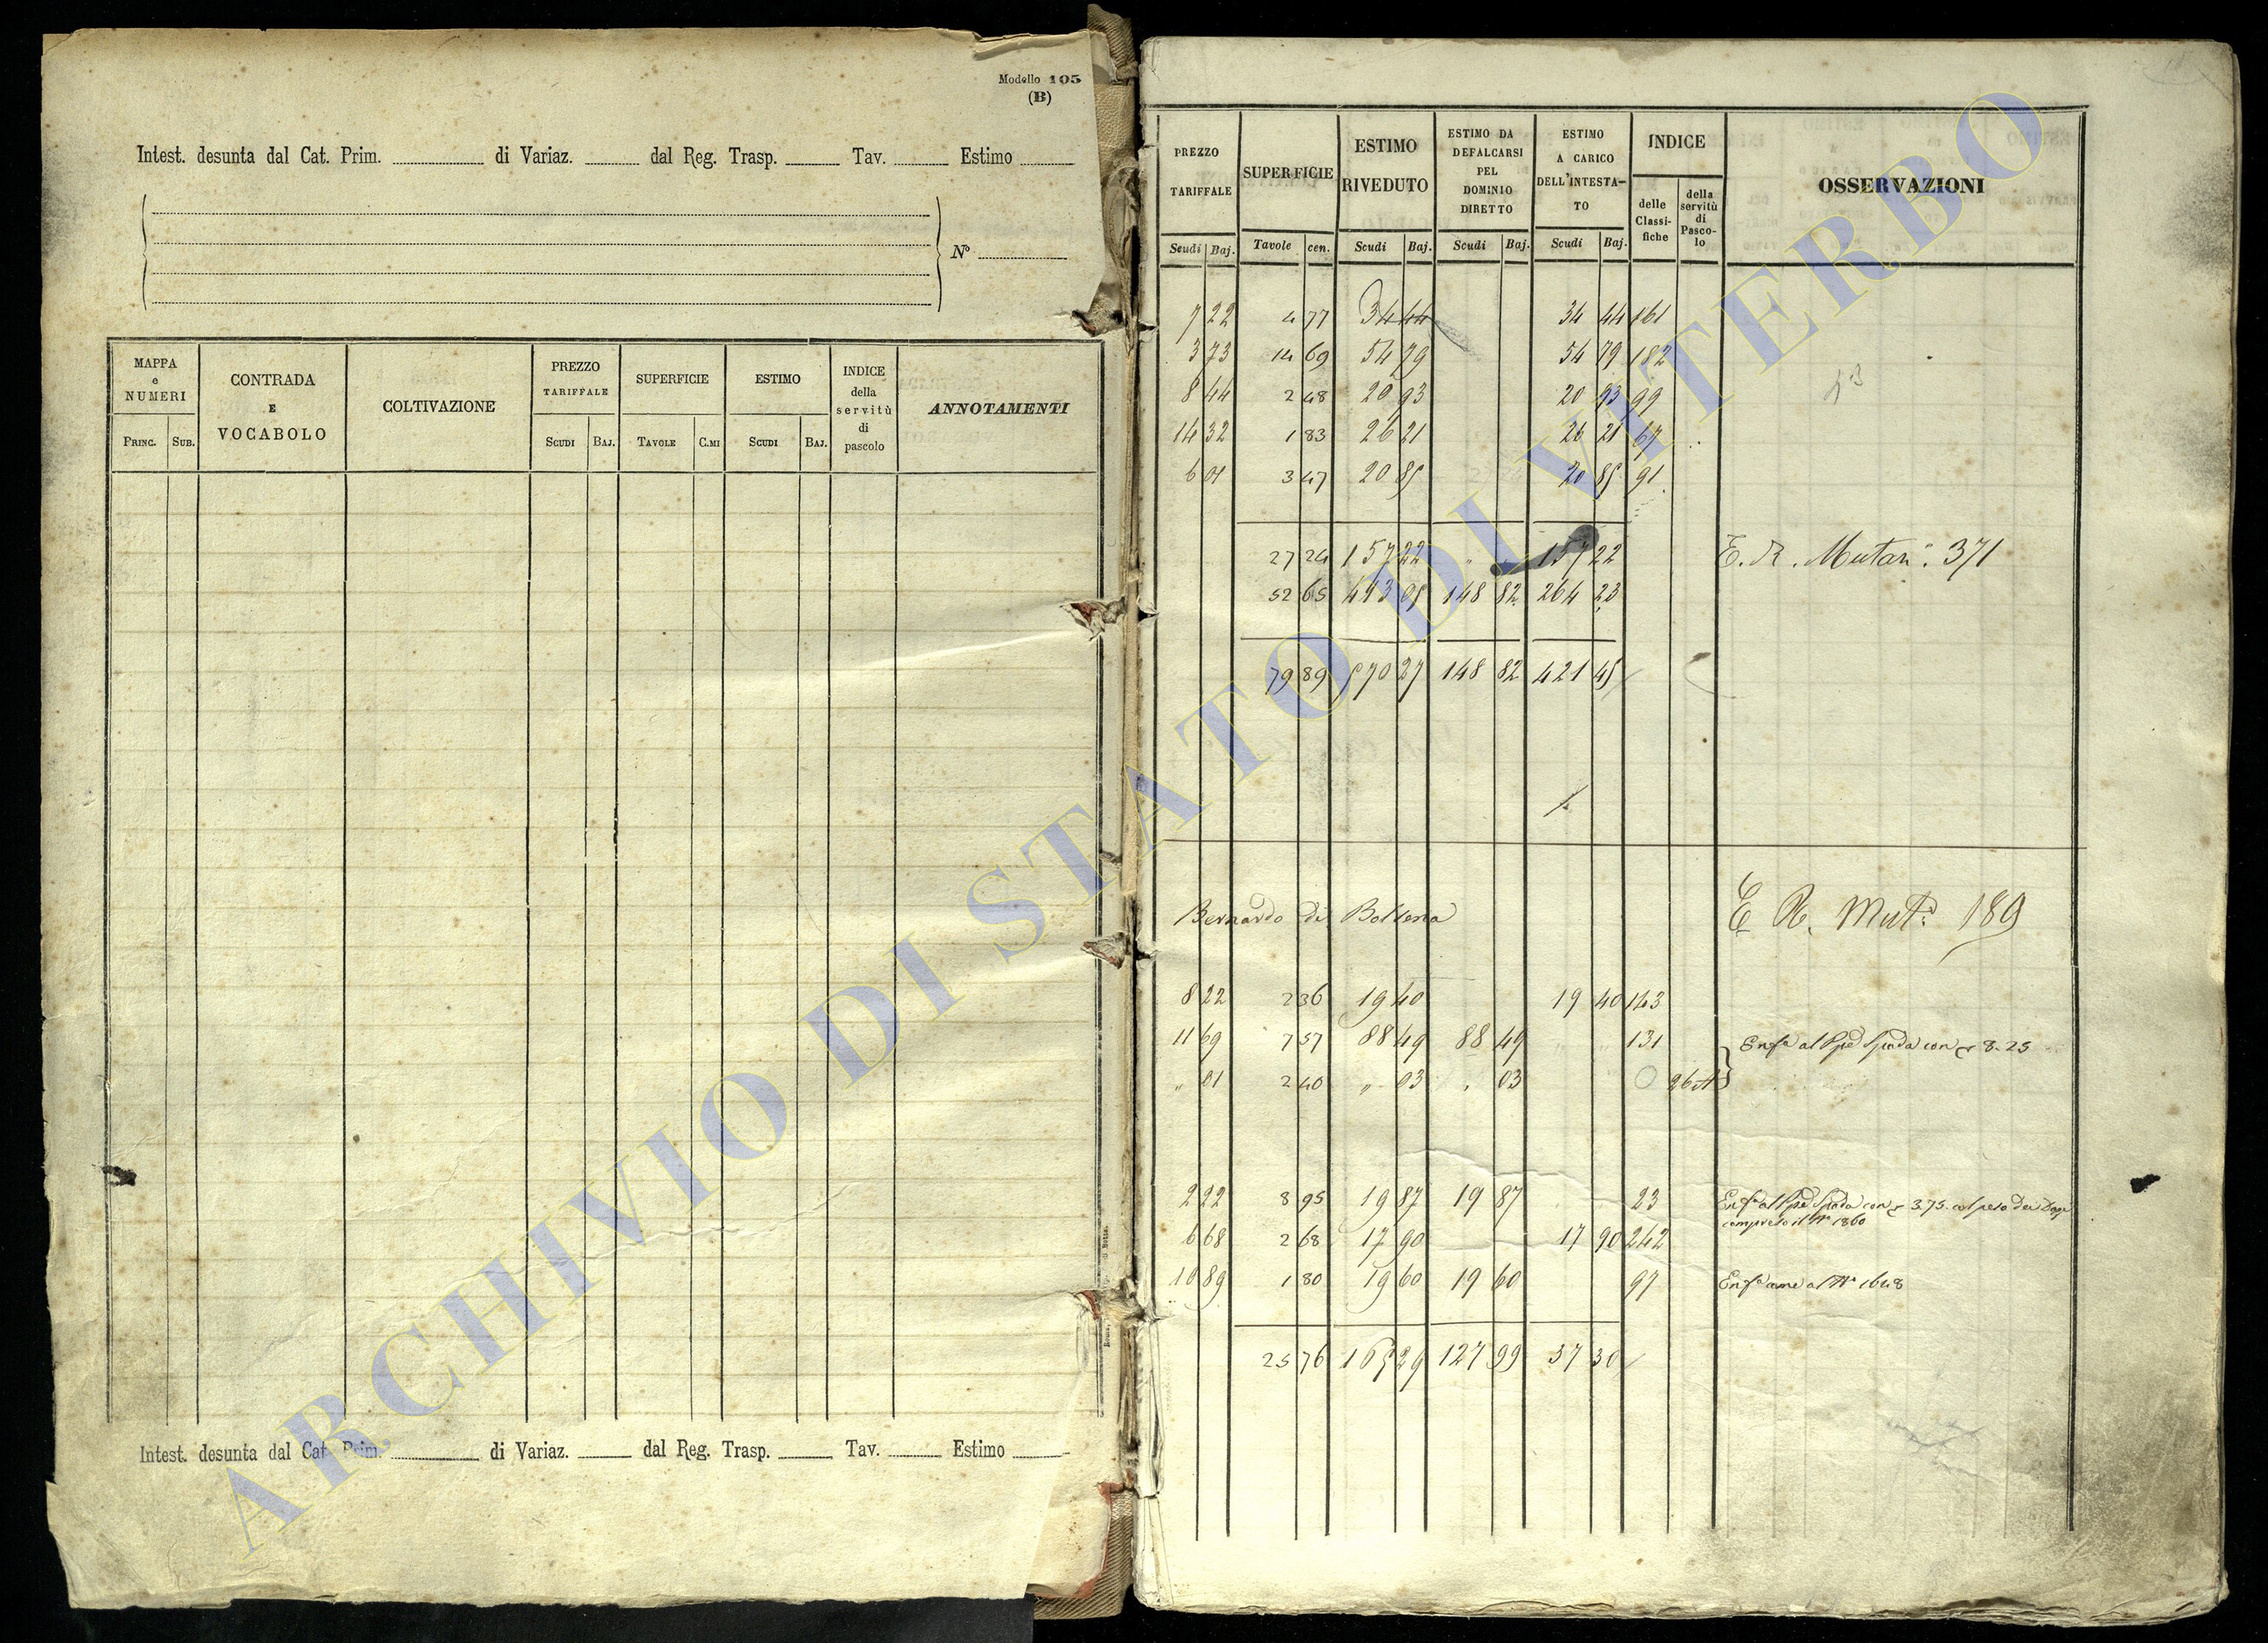 Modello 105
(B)
Intest. desunta dal Cat. Prim. di Variaz. dal Reg. Trasp. Tav. Estimo
N°
MAPPA e NUMERI
CONTRADA E VOCABOLO
COLTIVAZIONE
PREZZO TARIFFALE
SUPERFICIE
ESTIMO
INDICE della servitù di pascolo
ANNOTAMENTI
PRINC. SUB. SCUDI BAJ. TAVOLE C.MI SCUDI BAJ.
Intest. desunta dal Cat. Prim. di Variaz. dal Reg. Trasp. Tav. Estimo
PREZZO TARIFFALE
SUPERFICIE
ESTIMO RIVEDUTO
ESTIMO DA DEFALCARSI PEL DOMINIO DIRETTO
ESTIMO A CARICO DELL'INTESTA-TO
INDICE
delle Classi-fiche
della servitù di Pasco-lo
OSSERVAZIONI
Scudi Baj. Tavole cen. Scudi Baj. Scudi Baj. Scudi Baj.
7 22 4 77 34 44 34 44 161
3 73 14 69 54 79 54 79 182
8 44 2 48 20 93 20 93 99
14 32 1 83 26 21 26 21 67
6 01 3 47 20 85 20 85 91
27 24 157 22 " " 157 22 E. R. Mutan: 371
52 65 413 05 148 82 264 23
79 89 570 27 148 82 421 45
Bernardo di Bolsena E R. Mut: 189
8 22 2 36 19 40 19 40 143
11 69 7 57 88 49 88 49 131 Enfa al Spada con 8.25
" 01 2 40 " 03 " 03 0 26
2 22 8 95 19 87 19 87 23 Enfa al Spada con 3.75. col peso dei
compreso il N° 1860
6 68 2 68 17 90 17 90 242
10 89 1 80 19 60 19 60 97 Enfa come al N° 1648
25 76 165 29 127 99 37 30
ARCHIVIO DI STATO DI VITERBO